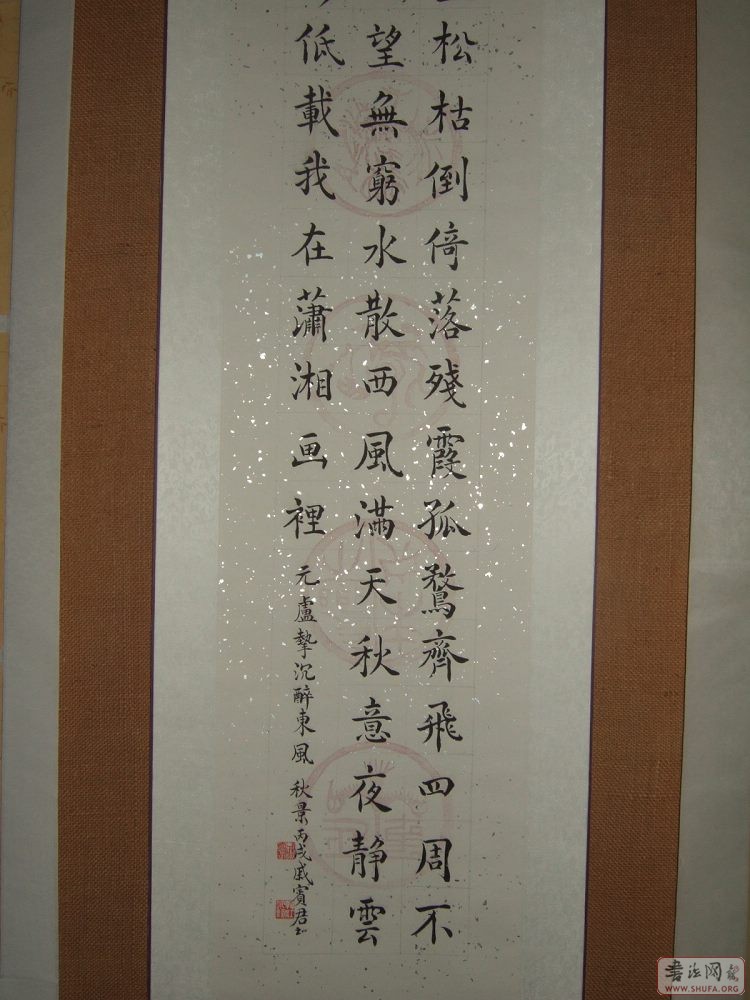 松枯倒倚落殘霞孤鶩齊飛四周不
望無窮水散西風滿天秋意夜靜雲
低載我在瀟湘画裡
元盧摯沉醉東風 秋景 丙戌戚賓君书
书法网
WWW.SHUFA.ORG